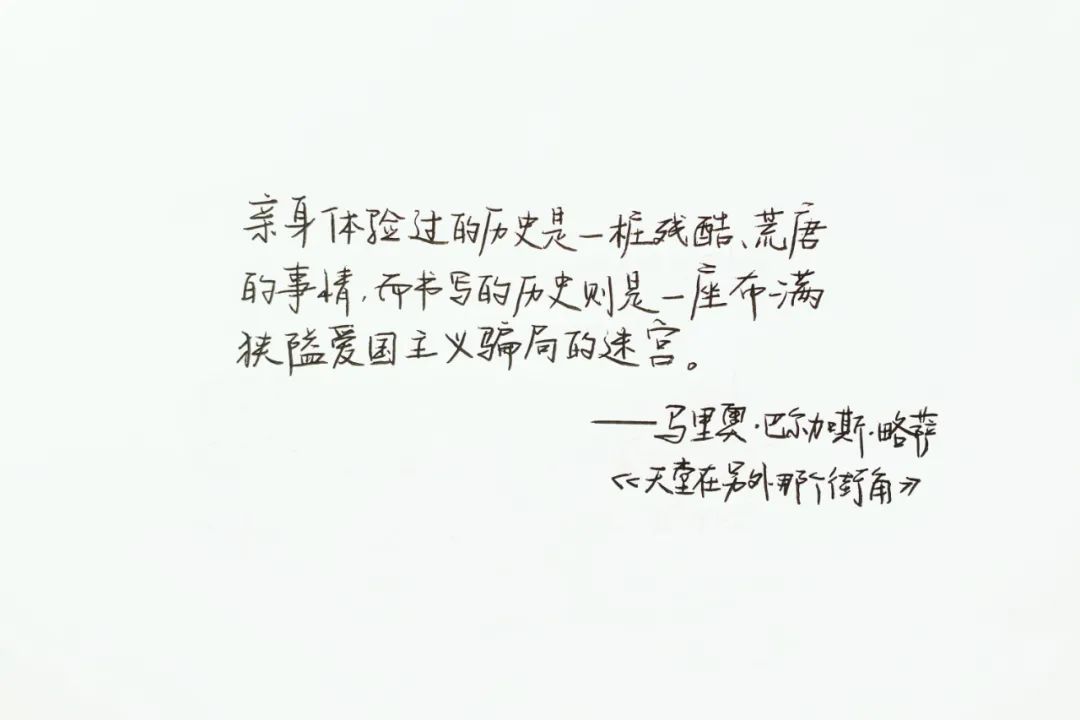 亲身体验过的历史是一桩残酷、荒唐
的事情,而书写的历史则是一座布满
狭隘爱国主义骗局的迷宫。
——马里奥·巴尔加斯·略萨
《天堂在另外那个街角》